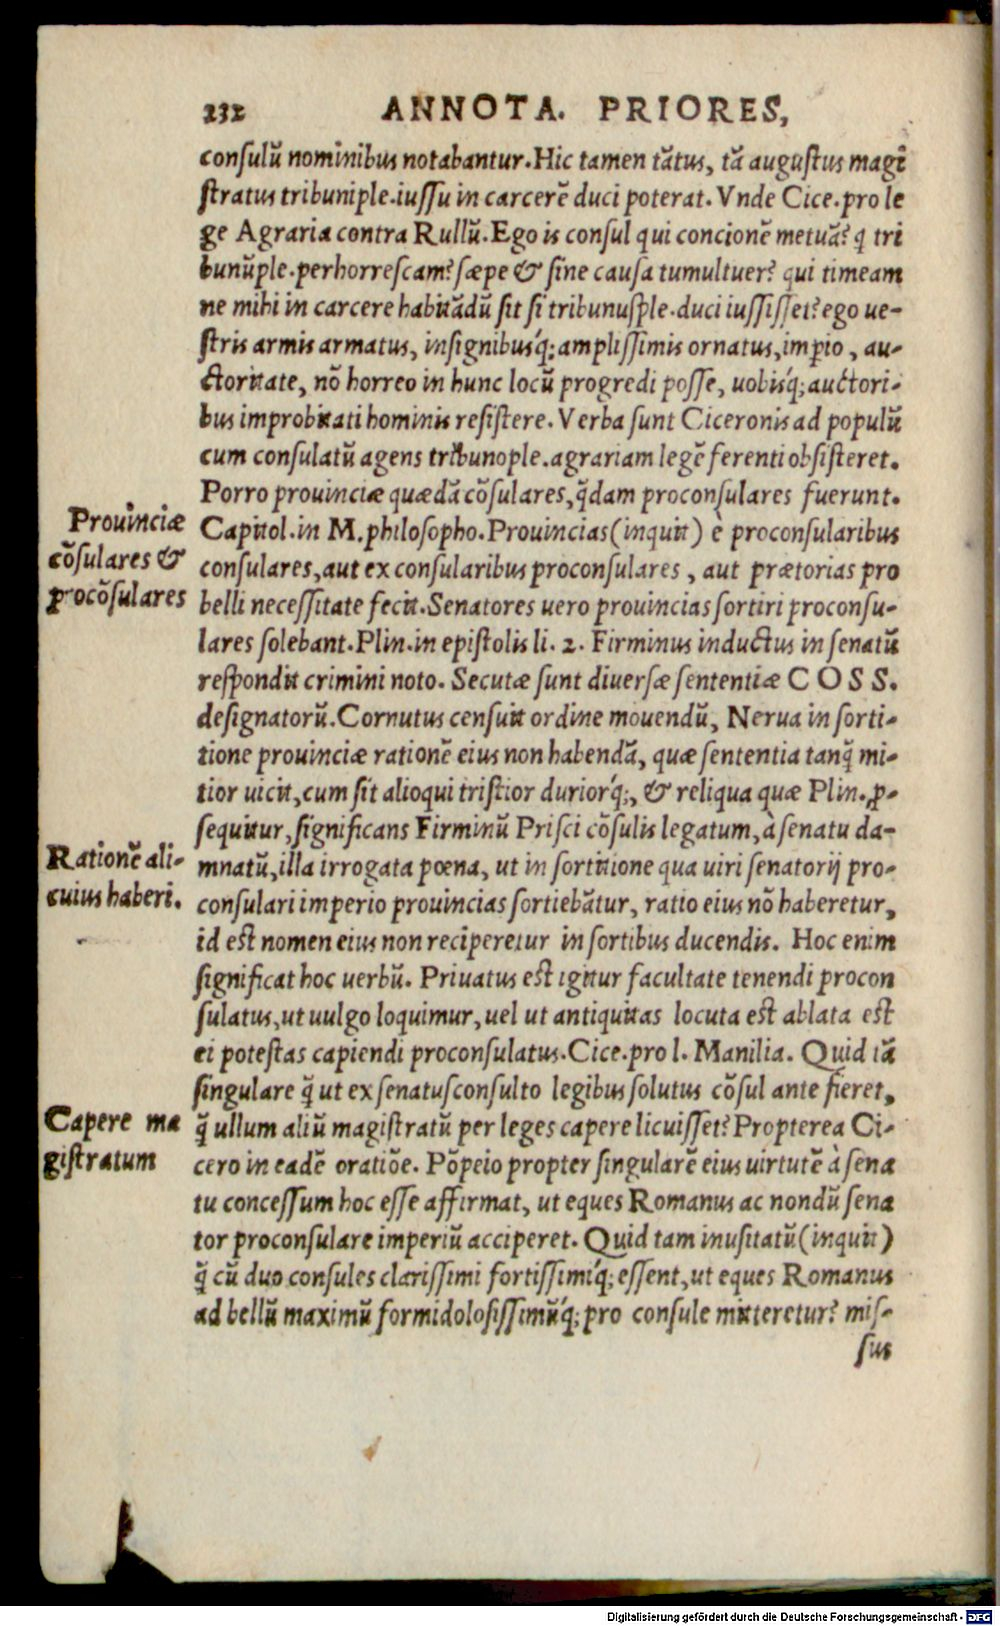 232 ANNOTA. PRIORES,
consulū nominibus notabantur. Hic tamen tātus, tā augustus magi
stratus tribuniple. iussu in carcerē duci poterat. Vnde Cice. pro le
ge Agraria contra Rullū. Ego is consul qui concionē metuā? q̃ tri
bunūple. perhorrescam? sæpe & sine causa tumultuer? qui timeam
ne mihi in carcere habitādū sit si tribunusple. duci iussisset? ego ue-
stris armis armatus, insignibusq́; amplissimis ornatus, imperio, au-
ctoritate, nō horreo in hunc locū progredi posse, uobisq́; auctori-
bus improbitati hominis resistere. Verba sunt Ciceronis ad populū
cum consulatū agens tribunople. agrariam legē ferenti obsisteret.
Porro prouinciæ quædā cōsulares, q̃dam proconsulares fuerunt.
Prouinciæ
cōsulares &
procōsulares
Capitol. in M. philosopho. Prouincias (inquit) è proconsularibus
consulares, aut ex consularibus proconsulares, aut prætorias pro
belli necessitate fecit. Senatores uero prouincias sortiri proconsu-
lares solebant. Plin. in epistolis li. 2. Firminus inductus in senatū
respondit crimini noto. Secutæ sunt diuersæ sententiæ COSS.
designatorū. Cornutus censuit ordine mouendū, Nerua in sorti-
tione prouinciæ rationē eius non habendā, quæ sententia tanq̃ mi-
tior uicit, cum sit alioqui tristior duriorq́;, & reliqua quæ Plin. ꝓ-
sequitur, significans Firminū Prisci cōsulis legatum, à senatu da-
Rationē ali-
cuius haberi.
mnatū, illa irrogata pœna, ut in sortitione qua uiri senatorij pro-
consulari imperio prouincias sortiebātur, ratio eius nō haberetur,
id est nomen eius non reciperetur in sortibus ducendis. Hoc enim
significat hoc uerbū. Priuatus est igitur facultate tenendi procon
sulatus, ut uulgo loquimur, uel ut antiquitas locuta est ablata est
ei potestas capiendi proconsulatus. Cice. pro l. Manilia. Quid tā
singulare q̃ ut ex senatusconsulto legibus solutus cōsul ante fieret,
Capere ma
gistratum
q̃ ullum aliū magistratū per leges capere licuisset? Propterea Ci-
cero in eadē oratiōe. Pōpeio propter singularē eius uirtutē à sena
tu concessum hoc esse affirmat, ut eques Romanus ac nondū sena
tor proconsulare imperiū acciperet. Quid tam inusitatū (inquit)
q̃ cū duo consules clarissimi fortissimiq́; essent, ut eques Romanus
ad bellū maximū formidolosissimūq́; pro consule mitteretur? mis-
sus
Digitalisierung gefördert durch die Deutsche Forschungsgemeinschaft - DFG